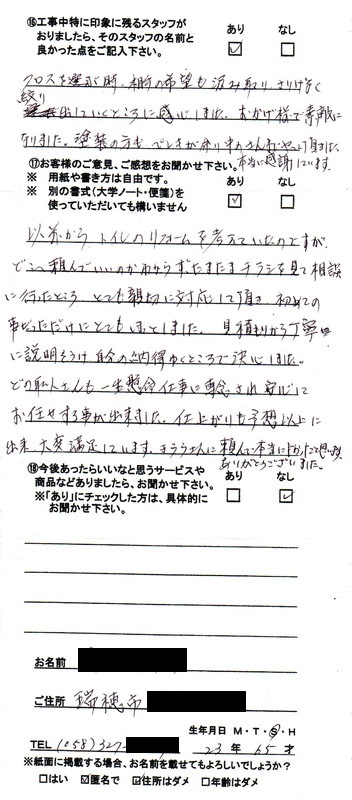 ⑯工事中特に印象に残るスタッフが
おりましたら、そのスタッフの名前と
良かった点をご記入下さい。
あり なし
クロスを選ぶ時、相手の希望も汲み取り、さりげなく
絞り出していくところに感心しました。おかげ様で素敵に
なりました。塗装の方も
本当に感謝しています。
⑰お客様のご意見、ご感想をお聞かせ下さい。
※ 用紙や書き方は自由です。
※ 別の書式(大学ノート・便箋)を
使っていただいても構いません
あり なし
以前から トイレのリフォームを考えていたのですが
どこへ頼んでいいのかわからずたまたまチラシを見て相談
に行ったところ とても親切に対応して頂き、初めての
事だっただけにとてもほっとしました。見積りから丁寧
に説明をうけ自分の納得ゆくところで決心しました。
どの職人さんも一生懸命仕事に専念され安心して
お任せする事が出来ました。仕上がりも予想以上に
出来、大変満足しています。きららさんに頼んで本当によかったと思います。
ありがとうございました。
⑱今後あったらいいなと思うサービスや
商品などありましたら、お聞かせ下さい。
※「あり」にチェックした方は、具体的に
お聞かせ下さい。
あり なし
お名前
ご住所 瑞穂市
生年月日 M・T・S・H
TEL (058) 327-
23 年 65 才
※紙面に掲載する場合、お名前を載せてもよろしいでしょうか?
□はい ☑匿名で ☑住所はダメ □年齢はダメ